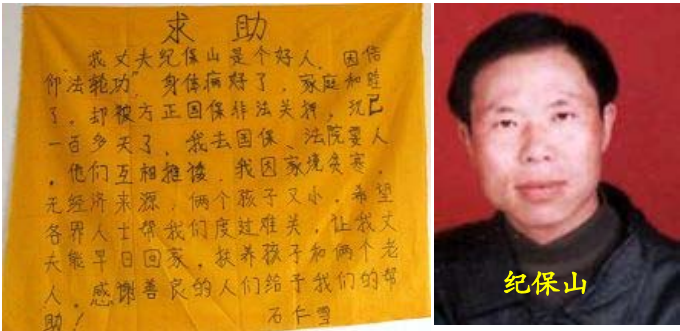 求助
我丈夫纪保山是个好人，因信
仰“法轮功”身体病好了，家庭和睦
了，却被方正国保非法关押，现已
一百多天了，我去国保、法院要人
，他们互相推诿，我因家境贫寒，
无经济来源，俩个孩子又小，希望
各界人士帮我们度过难关，让我丈
夫能早日回家，扶养孩子和俩个老
人，感谢善良的人们给于我们的帮
助！
石仁雪
纪保山